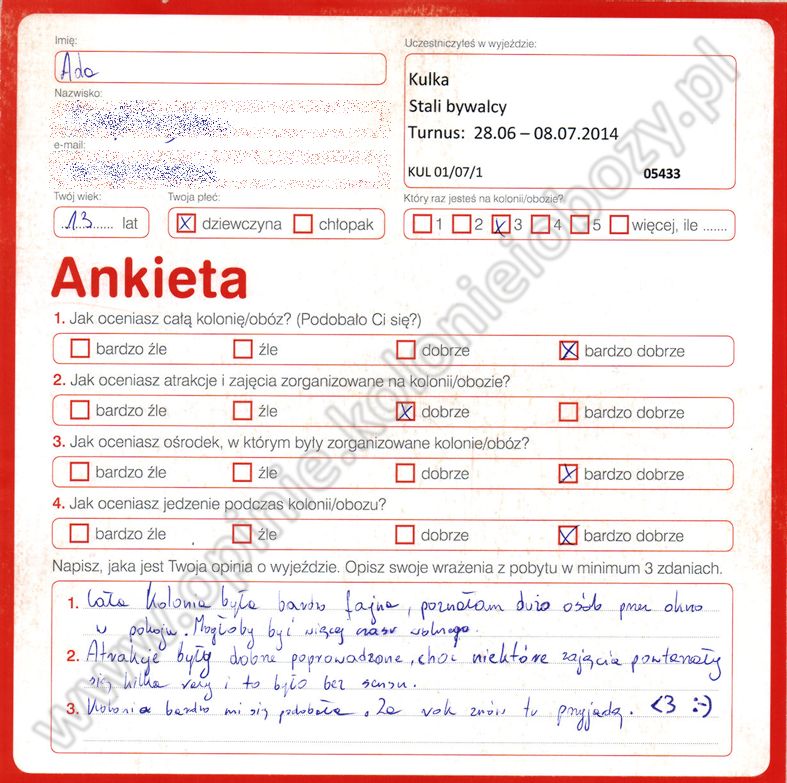 Imię:
Ada
Nazwisko:
e-mail:
Twój wiek:
13 lat
Twoja płeć:
dziewczyna chłopak
Uczestniczyłeś w wyjeździe:
Kulka
Stali bywalcy
Turnus: 28.06 – 08.07.2014
KUL 01/07/1 05433
Który raz jesteś na kolonii/obozie?
1 2 3 4 5 więcej, ile .......
Ankieta
1. Jak oceniasz całą kolonię/obóz? (Podobało Ci się?)
bardzo źle źle dobrze bardzo dobrze
2. Jak oceniasz atrakcje i zajęcia zorganizowane na kolonii/obozie?
bardzo źle źle dobrze bardzo dobrze
3. Jak oceniasz ośrodek, w którym były zorganizowane kolonie/obóz?
bardzo źle źle dobrze bardzo dobrze
4. Jak oceniasz jedzenie podczas kolonii/obozu?
bardzo źle źle dobrze bardzo dobrze
Napisz, jaka jest Twoja opinia o wyjeździe. Opisz swoje wrażenia z pobytu w minimum 3 zdaniach.
1. Cała Kolonia była bardzo fajna, poznałam dużo osób przez okno
w pokoju. Mogłoby być więcej czasu wolnego.
2. Atrakcje były dobrze poprowadzone, choć niektóre zajęcia powtarzały
się kilka razy i to było bez sensu.
3. Kolonia bardzo mi się podobała. Za rok znów tu przyjadę. <3 :-)
www.opinie.kolonieiobozy.pl